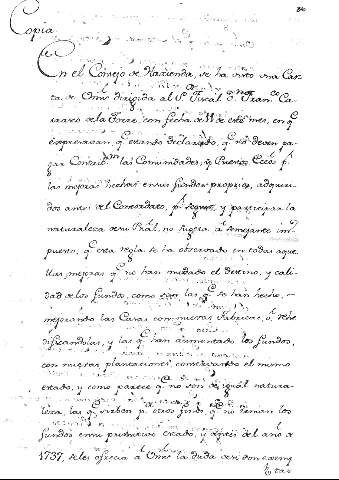 Copia
En el Consejo de Hacienda, se ha visto una Car
ta de Vms dirigida al Sr. Fiscal Dn. Franco Ca
rrasco de la Torre, con fecha de 11 de este mes, en q
expresavan, q estando declarado, q no deven pa
gar Contribon las Comunidades, y Puestos Eccos pr
las mejoras hechas en sus fundos propios, adquiri
dos antes del Concordato, pr seguir, y participar la
naturaleza de su Pral, no sugeta á semejante im
puesto; q esta regla se ha observado en todas aque
llas mejoras q no han mudado el destino, y cali
dad de los fundos, como son las q se han hecho,
mejorando las Casas con nuevas Fabricas, ó Ree
dificandolas, y las q han aumentado los fundos,
con nuevas plantaciones, conservando el mismo
estado, y como parece q no son de igual natura
leza, las q sirben pa otros fines q no tenian los
fundos en su primitivo estado, y antes del año de
1737, se les ofrecia á Vms la duda de si don exemp
tas